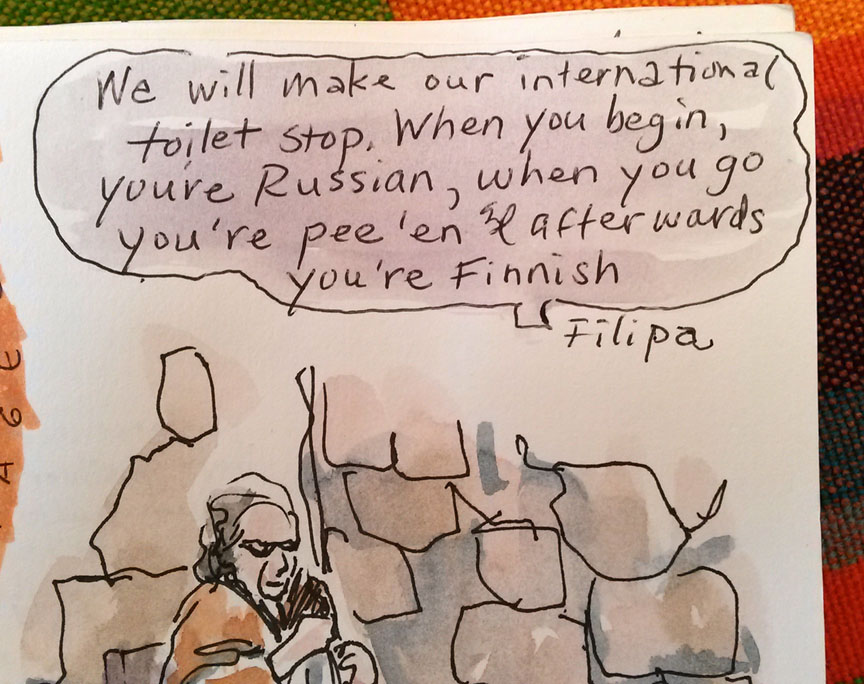 We will make our international
toilet stop. When you begin,
you're Russian, when you go
you're pee'en & afterwards
you're Finnish
Filipa